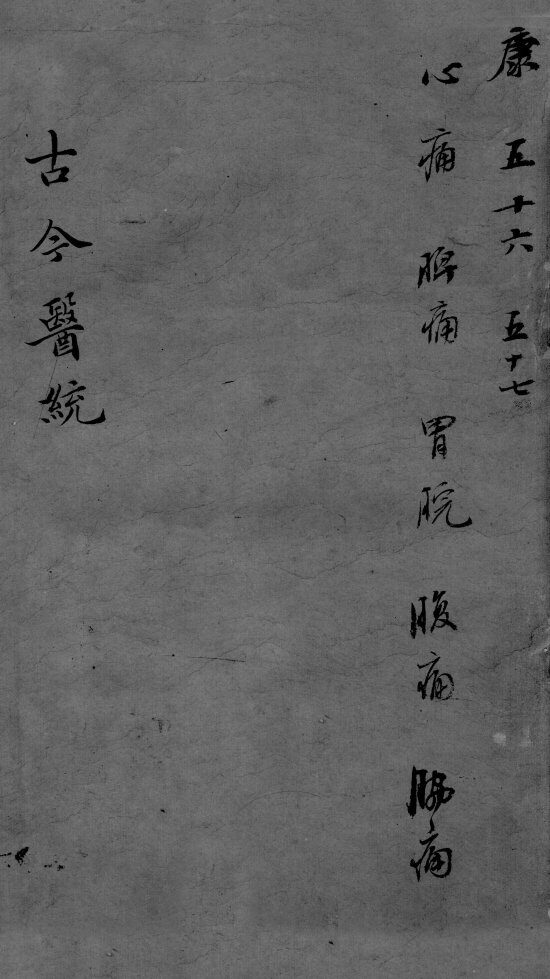 康 五十六 五十七
心痛 脾痛 胃脘 腹痛 脇痛
古今醫統